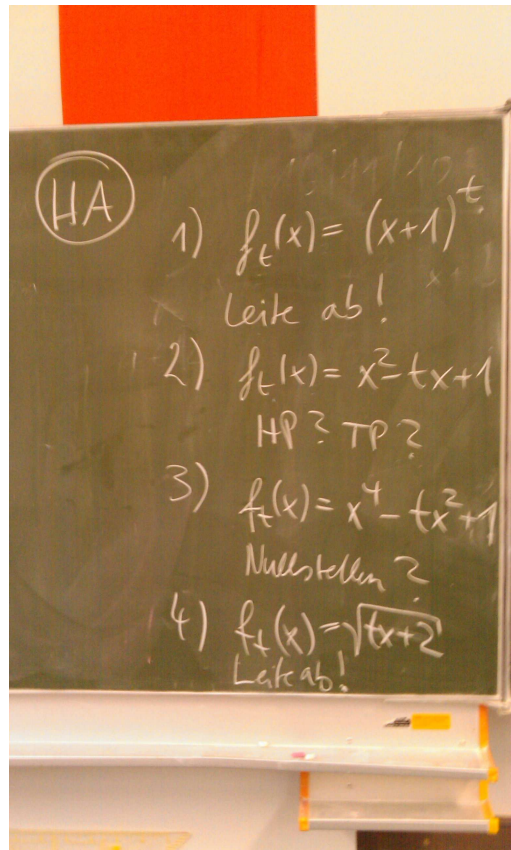 HA
1) fₜ(x) = (x+1)ᵗ
Leite ab!
2) fₜ(x) = x² - tx + 1
HP? TP?
3) fₜ(x) = x⁴ - tx² + 1
Nullstellen?
4) fₜ(x) = √(tx+2)
Leite ab!